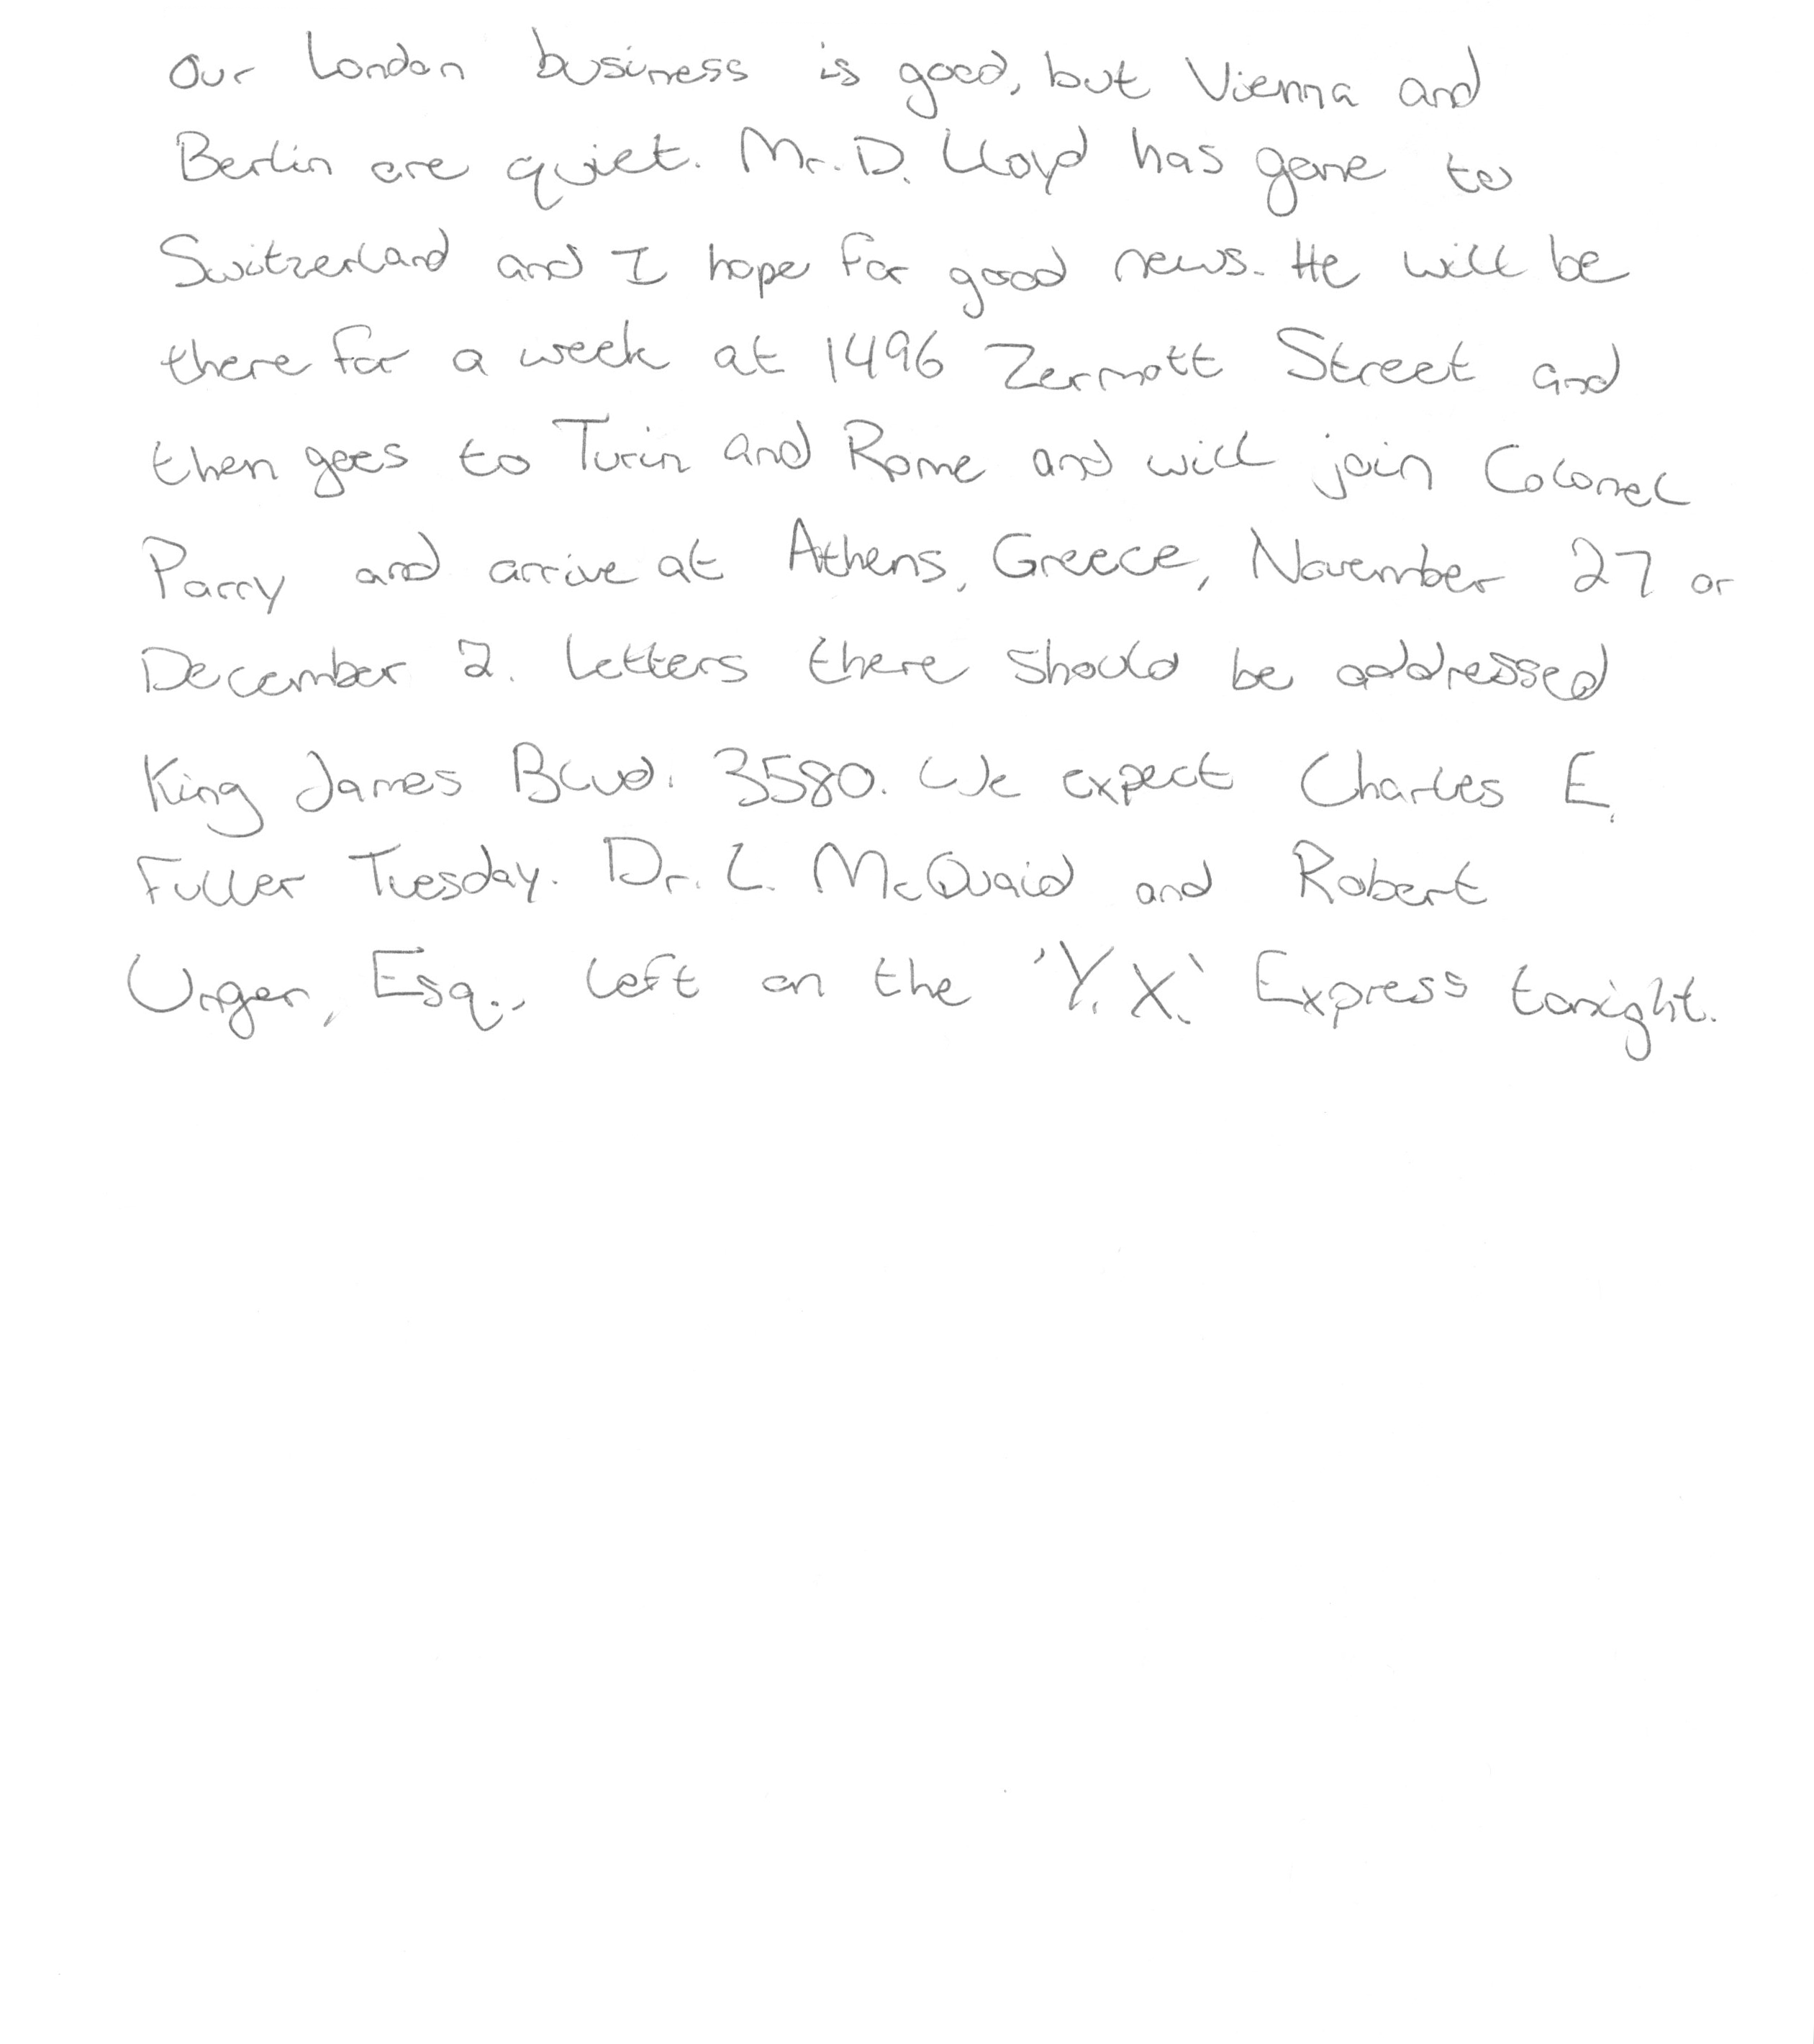 Our London business is good, but Vienna and
Berlin are quiet. Mr. D. Lloyd has gone to
Switzerland and I hope for good news. He will be
there for a week at 1496 Zermott Street and
then goes to Turin and Rome and will join Colonel
Parry and arrive at Athens, Greece, November 27 or
December 2. Letters there should be addressed
King James Blvd. 3580. We expect Charles E.
Fuller Tuesday. Dr. L. McQuaid and Robert
Unger, Esq., left on the 'Y.X.' Express tonight.